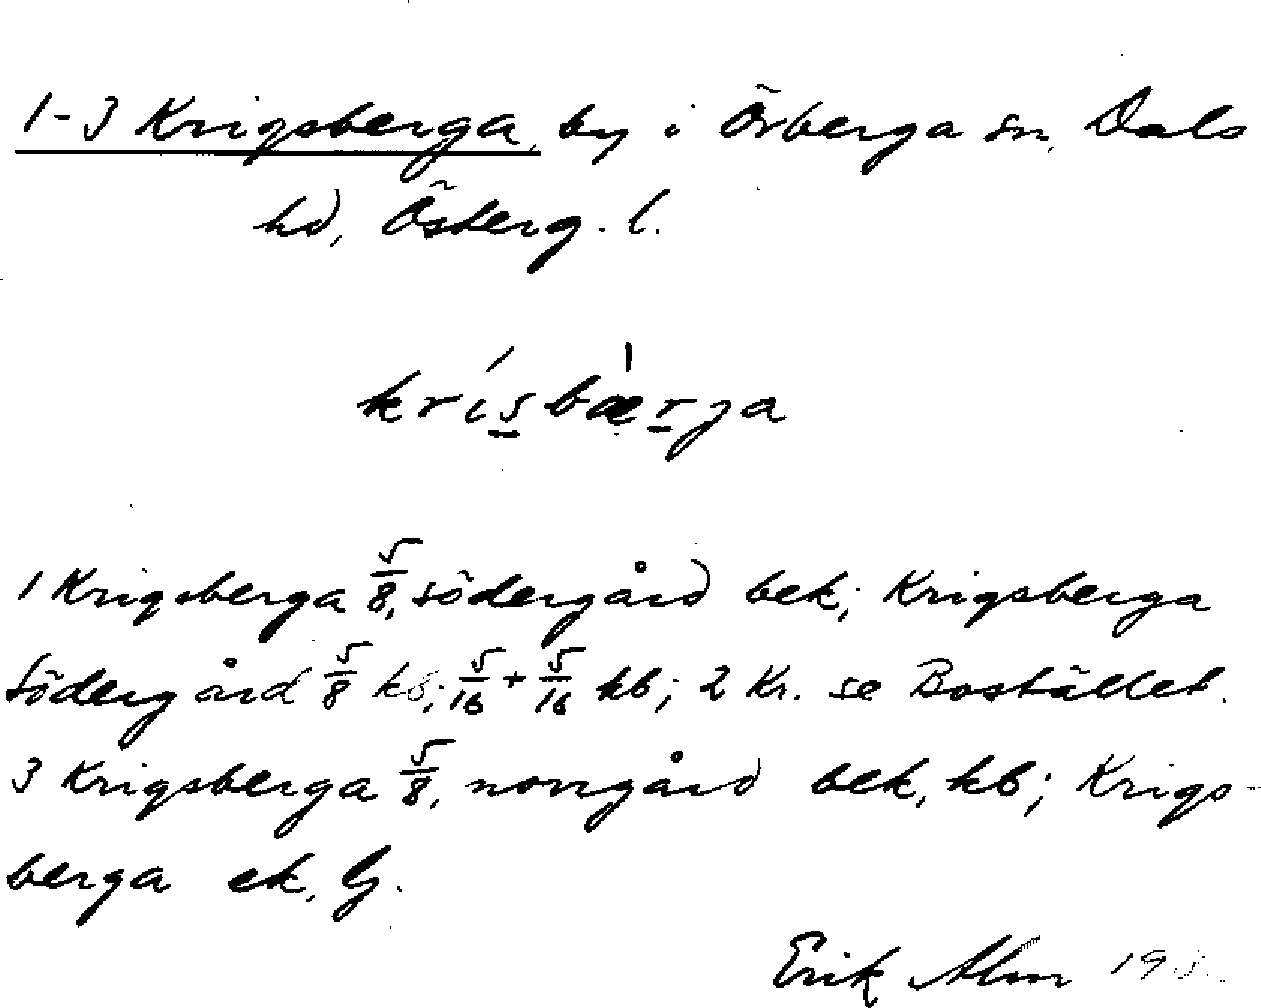 1-3 Krigsberga, by i Örberga sn, Dals
hd, Österg. l.
krisbærja
1 Krigsberga 5/8, södergård bek; Krigsberga
Södergård 5/8 kb; 5/16 + 5/16 kb; 2 Kr. se Bostället.
3 Krigsberga 5/8, norrgård bek, kb; Krigs-
berga ek, G.
Erik Alm